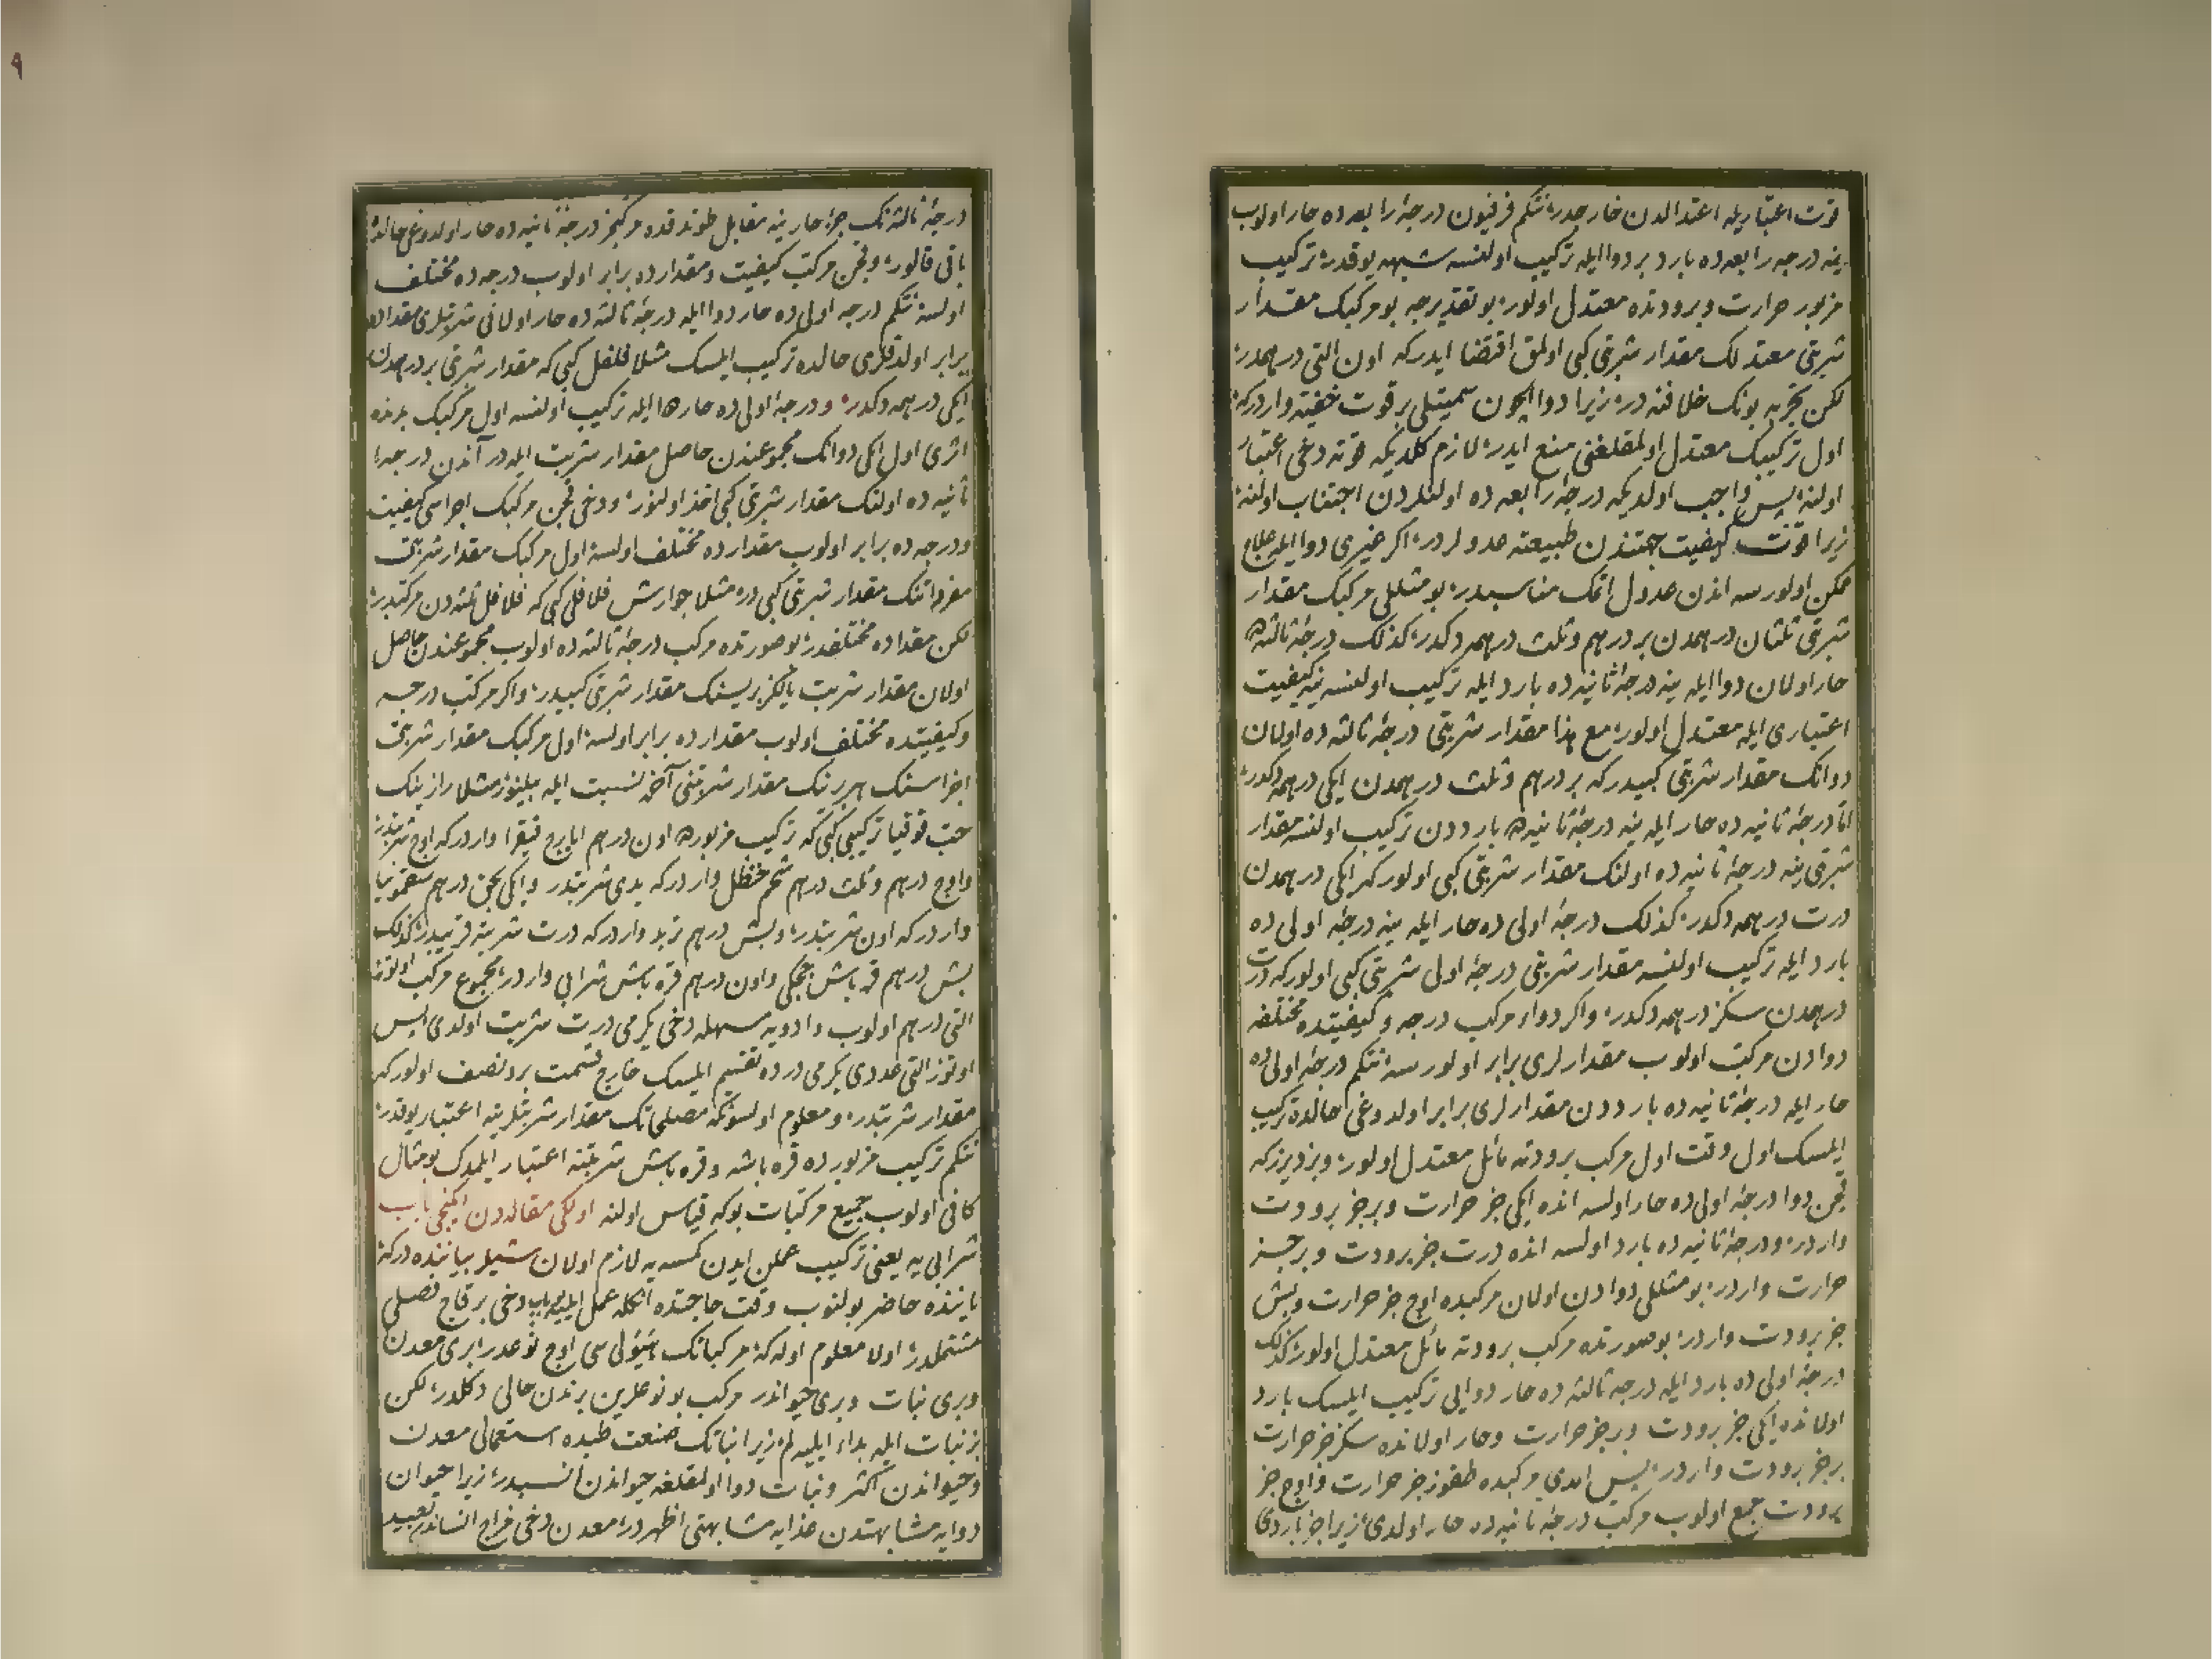 قوت اعتباریله اعتدالدن خارجدر نتکم فرفیون درجۀ رابعه ده حار اولوب
ینه درجه رابعه ده بارد بر دوا ایله ترکیب اولنسه شبهه یوقدر ترکیب
مزبور حرارت و برودتده معتدل اولور بو تقدیرجه بو مرکبک مقدار
شربتی معتدلک مقدار شربتی کبی اولمق اقتضا ایدرکه اون التی درهمدر
لکن تجربه بونک خلافنه در زیرا دوا ایچون سمیتلی بر قوت خفیه واردرکه
اول ترکیبک معتدل اولمقلغنی منع ایدر لازم کلدیکه قوته دخی اعتبار
اولنه پس واجب اولدیکه درجۀ رابعه ده اولنلردن اجتناب اولنه
زیرا قوت کیفیت جهتندن طبیعته عدولر در اکر غیری دوا ایله علاج
ممکن اولورسه اندن عدول اتمک مناسبدر بو مثللی مرکبک مقدار
شربتی ثلثان درهمدن بر درهم و ثلث درهمه دکدر کذلک درجۀ ثالثه ده
حار اولان دوا ایله ینه درجۀ ثانیه ده بارد ایله ترکیب اولنسه ینه کیفیت
اعتباری ایله معتدل اولور مع هذا مقدار شربتی درجۀ ثالثه ده اولان
دوانک مقدار شربتی کبیدرکه بر درهم و ثلث درهمدن ایکی درهمه دکدر
اما درجۀ ثانیه ده حار ایله ینه درجۀ ثانیه ده بارددن ترکیب اولنسه مقدار
شربتی ینه درجۀ ثانیه ده اولنک مقدار شربتی کبی اولور که ایکی درهمدن
درت درهمه دکدر کذلک درجۀ اولی ده حار ایله ینه درجۀ اولی ده
بارد ایله ترکیب اولنسه مقدار شربتی درجۀ اولی شربتی کبی اولورکه درت
درهمدن سکز درهمه دکدر و اکر دواء مرکب درجه و کیفیتده مختلفه
دوادن مرکب اولوب مقدارلری برابر اولورسه نتکم درجۀ اولی ده
حار ایله درجۀ ثانیه ده بارددن مقدارلری برابر اولدوغی حالده ترکیب
ایلسک اول وقت اول مرکب برودته مائل معتدل اولور و بز دیرزکه
قچن دوا درجۀ اولی ده حار اولسه انده ایکی جزء حرارت و بر جزء برودت
واردر و درجۀ ثانیه ده بارد اولسه انده درت جزء برودت و بر جزء
حرارت واردر بو مثللی دوادن اولان مرکبده اوچ جزء حرارت و بش
جزء برودت واردر بو صورتده مرکب برودته مائل معتدل اولور کذلک
درجۀ اولی ده بارد ایله درجه ثالثه ده حار دوایی ترکیب ایلسک بارد
اولانده ایکی جزء برودت و بر جزء حرارت و حار اولانده سکز جزء حرارت
بر جزء برودت واردر پس امدی مرکبده طقوز جزء حرارت و اوچ جزء
برودت جمع اولوب مرکب درجۀ ثانیه ده حار اولدی زیرا جزء باردی
درجۀ ثالثه نک جزء حارینه مقابل طوتدقده مرکبمز درجۀ ثانیه ده حار اولدوغی حالده
باقی قالور و قچن مرکب کیفیت و مقدارده برابر اولوب درجه ده مختلف
اولسه نتکم درجه اولی ده حار دوا ایله درجۀ ثالثه ده حار اولانی شربتلری مقدارده
برابر اولدقلری حالده ترکیب ایلسک مثلا فلفل کبی که مقدار شربتی بر درهمدن
ایکی درهمه دکدر و درجۀ اولی ده حارها ایله ترکیب اولنسه اول مرکبک بدنده
اثری اول ایکی دوانک مجموعندن حاصل مقدار شربت ایله در آندن درجۀ
ثانیه ده اولنک مقدار شربتی کبی اخذ اولنور و دخی قچن مرکبک اجزاسی کیفیت
و درجه ده برابر اولوب مقدارده مختلف اولسه اول مرکبک مقدار شربتی
مفرداتنک مقدار شربتی کبی در مثلا جوارش فلافلی کبی که فلافل ثلثه دن مرکبدر
لکن مقداده مختلفدر بو صورتده مرکب درجۀ ثالثه ده اولوب مجموعندن حاصل
اولان مقدار شربت یالکز بریسنک مقدار شربتی کبیدر و اکر مرکب درجه
و کیفیتده مختلف اولوب مقدارده برابر اولسه اول مرکبک مقدار شربتی
اجزاسنک هر برینک مقدار شربتنی آخره نسبت ایله بیلنور مثلا رازینک
حب قوقیا ترکیبی کبی که ترکیب مزبورده اون درهم ایارج فیقرا واردرکه اوچ شربتدر
و اوچ درهم و ثلث درهم شحم حنظل واردرکه یدی شربتدر و ایکی بچق درهم سقمونیا
واردرکه اون شربتدر و بش درهم تربد واردرکه درت شربته قریبدر کذلک
بش درهم قره باش چچکی و اون درهم قره باش شرابی واردر مجموع مرکب اوتوز
التی درهم اولوب و ادویه مسهله دخی یکرمی درت شربت اولدی پس
اوتوز التی عددی یکرمی درده تقسیم ایلسک خارج قسمت بر و نصف اولورکه
مقدار شربتدر و معلوم اولسونکه مصلحاتک مقدار شربتلرینه اعتبار یوقدر
نتکم ترکیب مزبورده قره باشه و قره باش شربتنه اعتبار ایلمدک بو مثال
کافی اولوب جمیع مرکبات بوکه قیاس اولنه اولکی مقاله دن ایکنجی باب
شرابی یه یعنی ترکیب عملن ایدن کمسه یه لازم اولان شیلر بیاننده درکه
یاننده حاضر بولنوب وقت حاجتده انکله عمل ایلیه بو باب دخی بر قاچ فصلی
مشتملدر اولا معلوم اوله که مرکباتک هیولی سی اوچ نوعدر بری معدن
و بری نبات و بری حیواندر مرکب بو نوعلرین برندن خالی دکلدر لکن
بز نبات ایله بداء ایلیه لم زیرا نباتک صنعت طبده استعمالی معدن
و حیواندن اکثر و نبات دوا اولمقلغه حیواندن انسبدر زیرا حیوان
دوایه مشابهتدن غذایه مشابهتی اظهردر معدن دخی مزاج انساندن بعید
٩